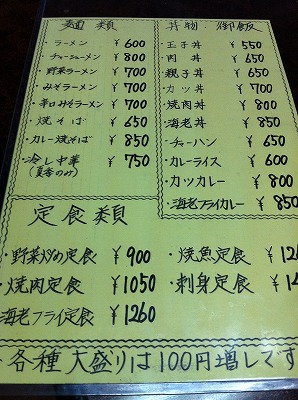 麺類
・ラーメン ¥600
・チャーシューメン ¥800
・野菜ラーメン ¥700
・みそラーメン ¥700
・辛口みそラーメン ¥700
・焼そば ¥650
・カレー焼そば ¥850
・冷し中華 ¥750
(夏季のみ)
丼物・御飯
・玉子丼 ¥550
・肉丼 ¥650
・親子丼 ¥650
・カツ丼 ¥700
・焼肉丼 ¥800
・海老丼 ¥850
・チャーハン ¥650
・カレーライス ¥600
・カツカレー ¥800
・海老フライカレー ¥850
定食類
・野菜炒め定食 ¥900
・焼肉定食 ¥1050
海老フライ定食 ¥1260
・焼魚定食 ¥
・刺身定食 ¥
各種大盛りは100円増しです